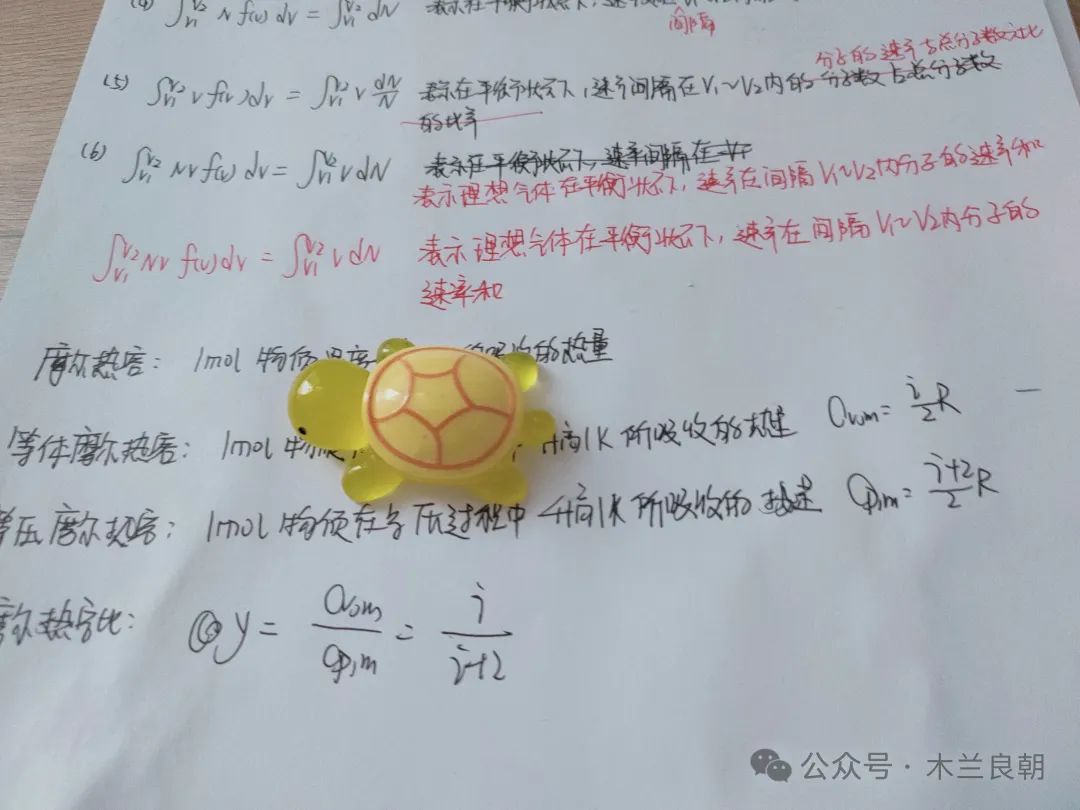 (4) ∫_{V1}^{V2} N f(v) dv = ∫_{V1}^{V2} dN 表示在平衡状态下,速率
间隔
分子的速率与总分子数之比
(5) ∫_{V1}^{V2} v f(v) dv = ∫_{V1}^{V2} v dN/N 表示在平衡状态下,速率间隔在V1~V2内的分子数占总分子数
的比率
(6) ∫_{V1}^{V2} Nv f(v) dv = ∫_{V1}^{V2} v dN 表示在平衡状态下,速率间隔在
表示理想气体在平衡状态下,速率在间隔V1~V2内分子的速率和
∫_{V1}^{V2} Nv f(v) dv = ∫_{V1}^{V2} v dN 表示理想气体在平衡状态下,速率在间隔V1~V2内分子的
速率和
摩尔热容: 1mol 物质 的热量
等体摩尔热容: 1mol 物质 升高1K所吸收的热量 Cv,m = i/2 R
等压摩尔热容: 1mol 物质在等压过程中升高1K所吸收的热量 Cp,m = i+2/2 R
摩尔热容比: γ = Cv,m/Cp,m = i/i+2
公众号·木兰良朝